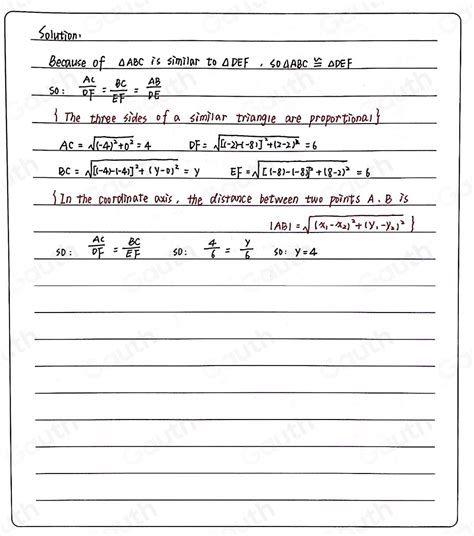 Solution:
Because of △ABC is similar to △DEF, so △ABC ≌ △DEF
so: AC/DF = BC/EF = AB/DE
{ The three sides of a similar triangle are proportional }
AC = √((-4)²+0²) = 4 DF = √([-2)-(-8)]²+(2-2)² = 6
BC = √[(-4)-(-4)]²+(y-0)² = y EF = √[(-8)-(-8)]²+(8-2)² = 6
{ In the coordinate axis, the distance between two points A. B is
|AB| = √((x₁-x₂)²+(y₁-y₂)²) }
so: AC/DF = BC/EF so: 4/6 = y/6 so: y=4